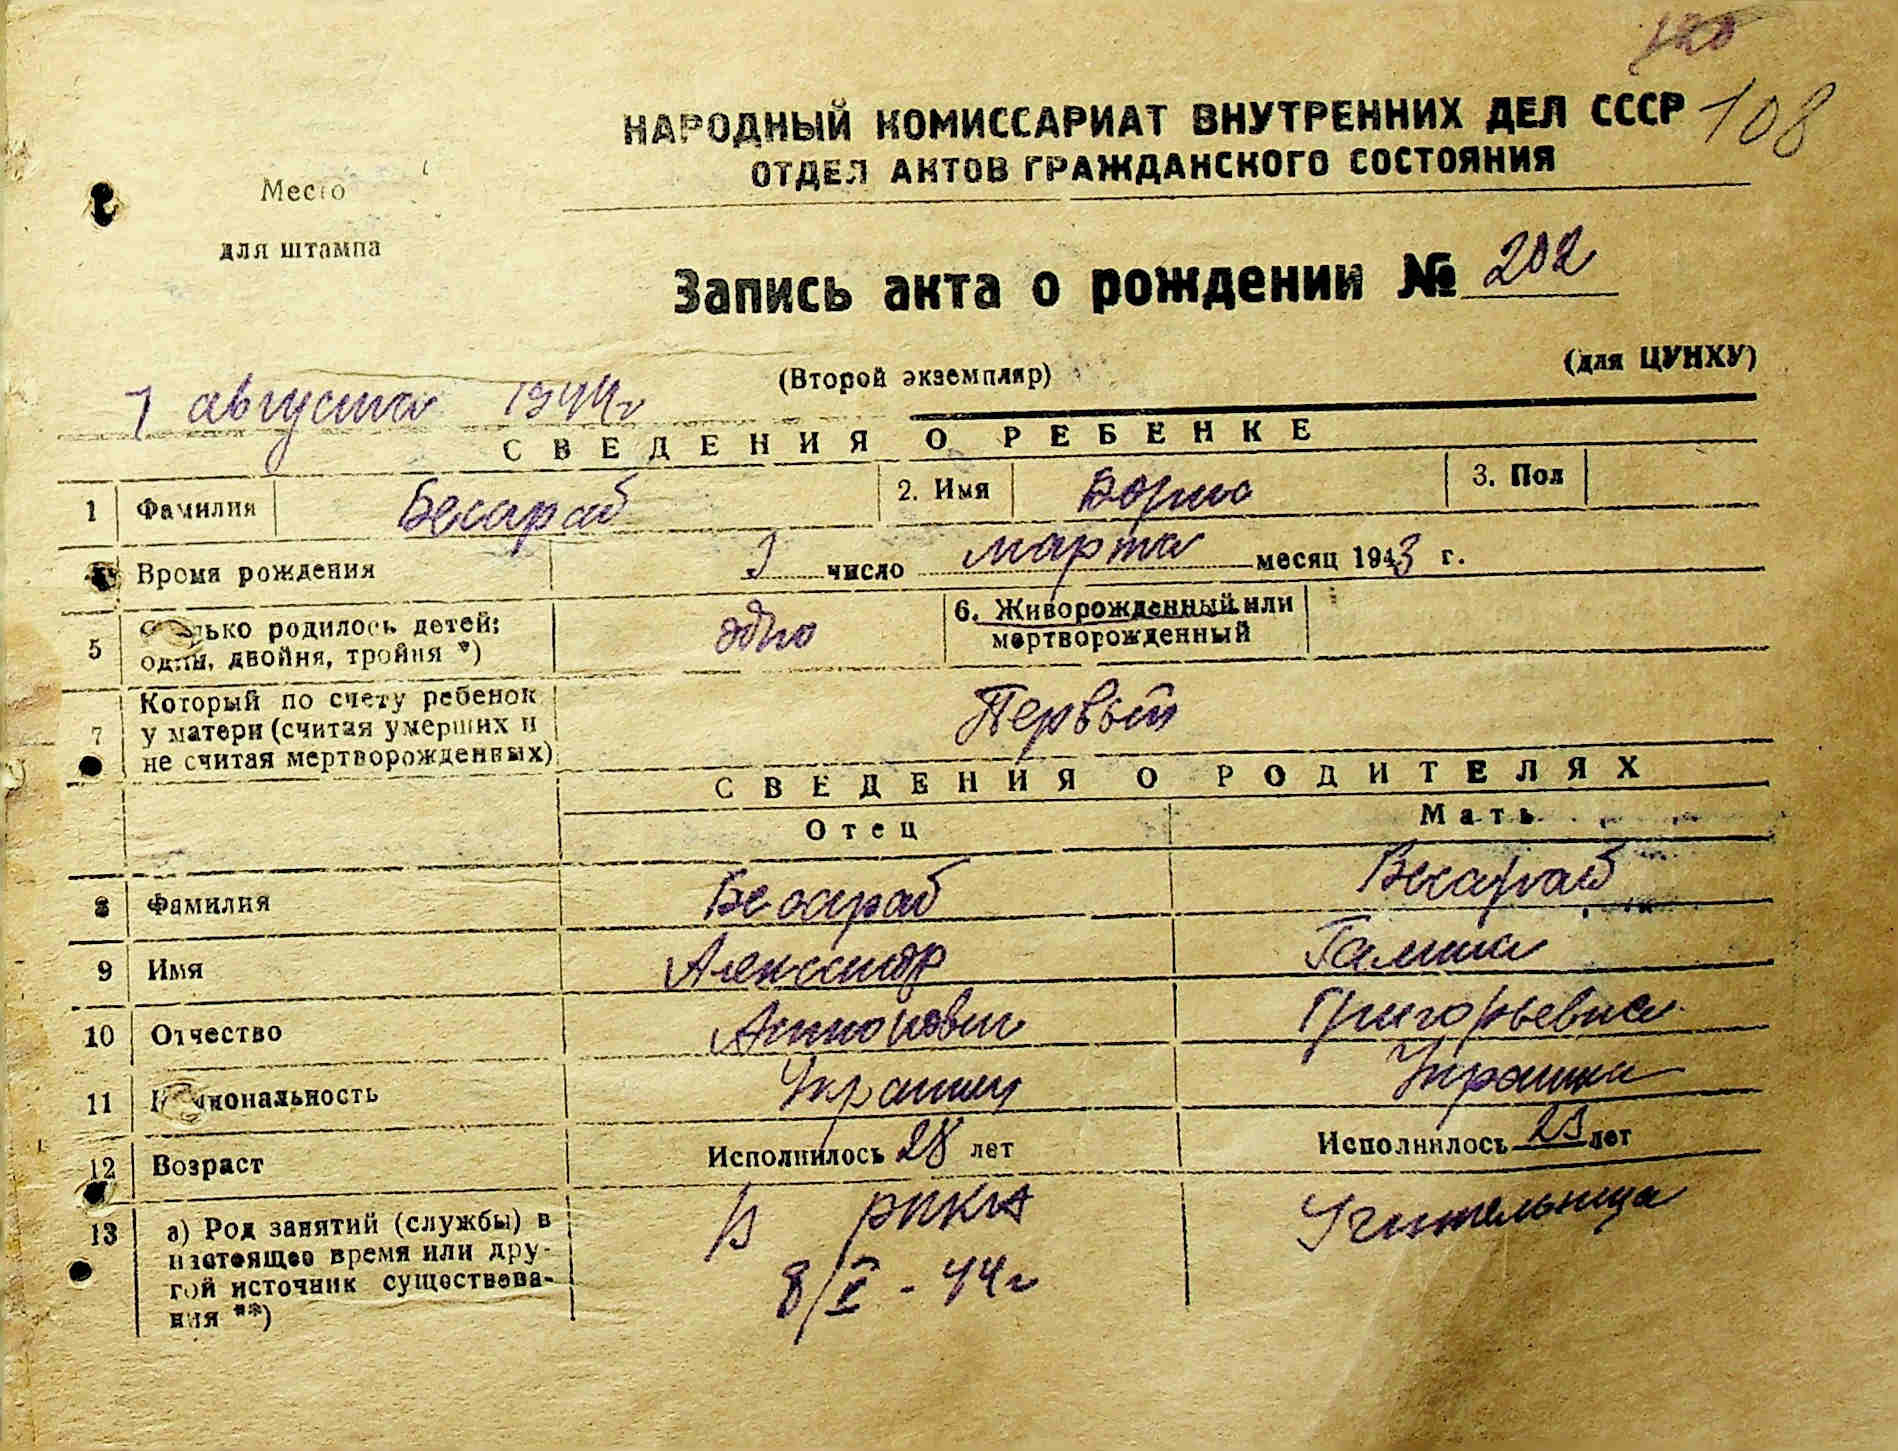 128
108
НАРОДНЫЙ КОМИССАРИАТ ВНУТРЕННИХ ДЕЛ СССР
ОТДЕЛ АКТОВ ГРАЖДАНСКОГО СОСТОЯНИЯ
Место
для штампа
Запись акта о рождении № 202
(Второй экземпляр)
(для ЦУНХУ)
7 августа 1944 г
СВЕДЕНИЯ О РЕБЕНКЕ
1 Фамилия Бесараб 2. Имя Борис 3. Пол
Время рождения 3 число марта месяц 1943 г.
5 Сколько родилось детей: одни, двойня, тройня *) одно 6. Живорожденный или мертворожденный
7 Который по счету ребенок у матери (считая умерших и не считая мертворожденных) Первый
СВЕДЕНИЯ О РОДИТЕЛЯХ
Отец Мать
8 Фамилия Бесараб Бесараб
9 Имя Александр Галина
10 Отчество Антонович Григорьевна
11 Национальность Украинец Украинка
12 Возраст Исполнилось 28 лет Исполнилось 23 лет
13 а) Род занятий (службы) в
настоящее время или дру-
гой источник существова-
ния **)
В РККА
8/X - 44 г
Учительница